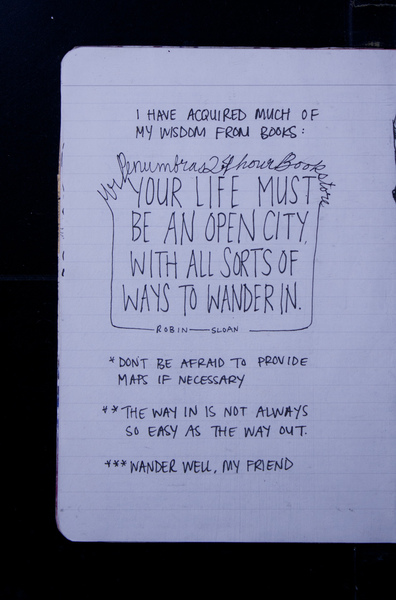 I HAVE ACQUIRED MUCH OF
MY WISDOM FROM BOOKS:
Mr. Penumbras 24 hour Bookstore
YOUR LIFE MUST
BE AN OPEN CITY,
WITH ALL SORTS OF
WAYS TO WANDER IN.
ROBIN SLOAN
* DON'T BE AFRAID TO PROVIDE
MAPS IF NECESSARY
** THE WAY IN IS NOT ALWAYS
SO EASY AS THE WAY OUT.
*** WANDER WELL, MY FRIEND